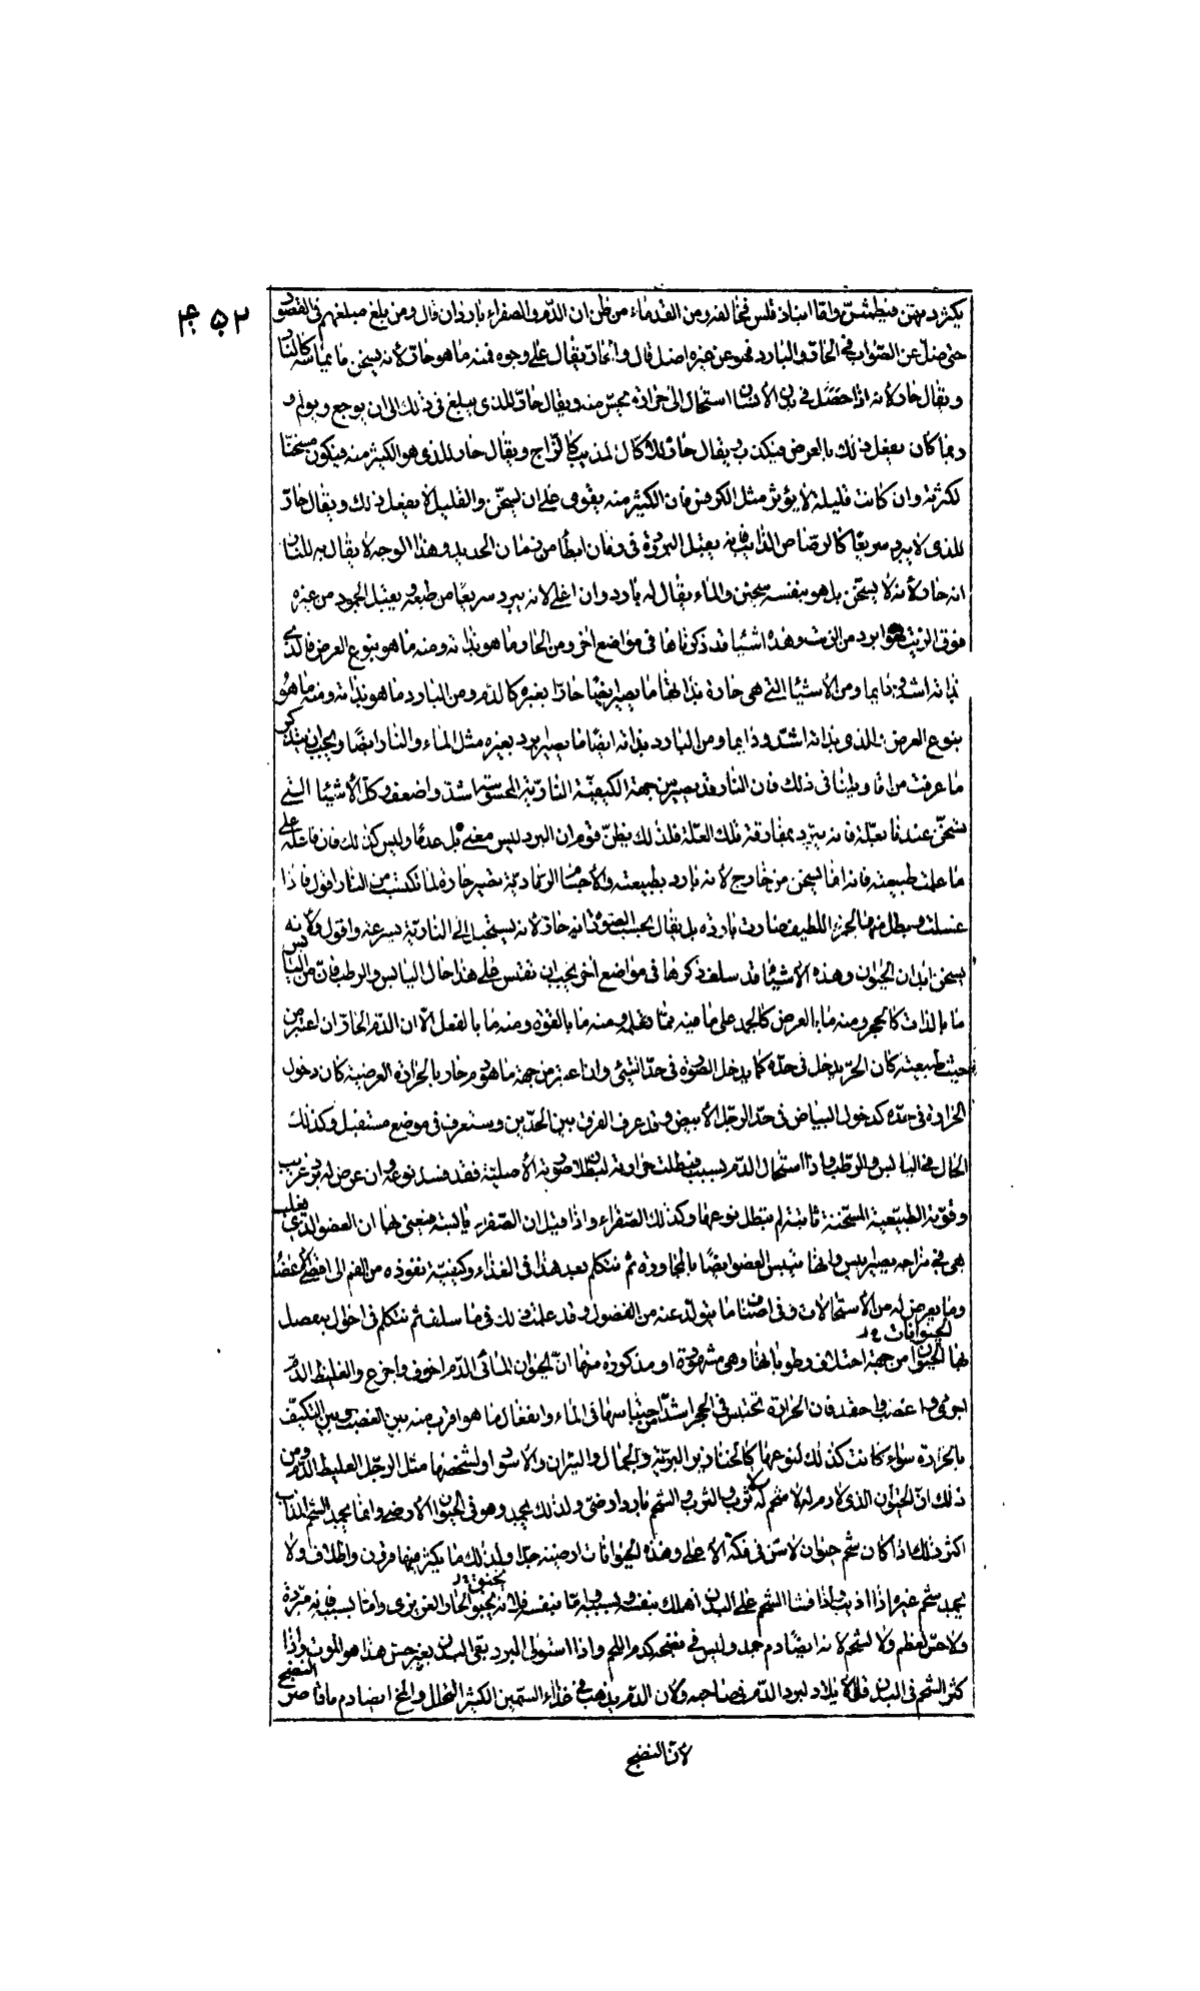 ۴۵۲
يكثر دمهن فيطمثن واما انبادقلس فخالفه ومن القدماء من ظن ان الدم والصفراء باردان قال ومن بلغ مبلغهم في القصور
حتى ضل عن الصواب في الحار والبارد فهو عن غيره اضل قال والحار يقال على وجوه فمنه ما هو حار لانه يسخن ما يماسه كالنار
ويقال حار لانه اذا حصل في بدن الانسان استحال الى حرارة تحس منه ويقال حار للذي يبلغ في ذلك الى ان يوجع ويولم و
ربما كان يفعل ذلك بالعرض فيكذب ويقال حار لكل مذيب كالزاج ويقال حار للذي هو الكثير منه فيكون مسخنا
لكثرته وان كانت قليلة لا يؤثر مثل الكرفس فان الكثير منه يقوى على ان يسخن والقليل لا يفعل ذلك ويقال حار
للذي لا يبرد سريعا كالرصاص الذائب فانه يقبل البرودة في زمان ابطأ من زمان الحديد وهذا الوجه لا يقال به للنار
انه حار لانه لا يسخن بل هو بنفسه سخين والماء يقال له بارد وان اغلى لانه يبرد سريعا من طبعه ويقبل الجمود من غيره
فوق الزيت فهو ابرد من الزيت وهذه اشياء قد ذكرناها في مواضع اخر ومن الحار ما هو بذاته ومنه ما هو بنوع العرض فالذي
بذاته اشد دايما ومن الاشياء التي هي حارة بذاتها ما يصير ايضا حارا بغيره كالدم ومن البارد ما هو بذاته ومنه ما هو
بنوع العرض والذي بذاته اشد ودايما ومن البارد بذاته ايضا ما يصير يبرد بغيره مثل الماء والنار ايضا ويجب ان يتذكر
ما عرفت من اقاويلنا في ذلك فان النار قد يصير من جهة الكيفية النارية المحسوسة اشد واضعف وكل الاشياء التي
تسخن عند فاعلة فانه يبرد بمفارقة تلك العلة فلذلك يظن قوم ان البرد ليس معنى بل عدما وليس كذلك فان فاعله على
ما علمت طبيعته فانه انما يسخن من خارج لانه بارد بطبيعته والاجسام الرمادية تصير حارة لما تكتسب من النار اقول فاذا
غسلت وبطل منها الجزء اللطيف صارت باردة بل يقال بحسب القوة انه حار لانه يستحيل الى النارية بسرعة واقول ولانه
يسخن ابدان الحيوان وهذه الاشياء قد سلف ذكرها في مواضع اخر يجب ان تقتبس على هذا حال اليابس والرطب فان من اليابس
ما بالذات كالحجر ومنه ما بالعرض كالجمد على ما فيه مما تعلم ومنه ما بالقوة ومنه ما بالفعل الا ان الدم الحار ان اعتبر من
حيث طبيعته كان الحر يدخل في حده كما يدخل الصورة في حد الشئ وان اعتبر من جهة ما هو دم حار بالحرارة العرضية كان دخول
الحرارة في حده كدخول البياض في حد الرجل الابيض وقد عرف الفرق بين الحدين وستعرف في موضع مستقبل وكذلك
الحال في اليابس والرطب واذا استحال الدم بسبب فبطلت حرارته لبطلان صورته الاصلية فقد فسد نوعه وان عرض له برد غريب
وقوته الطبيعية المسخنة ثابتة لم تبطل نوعها وكذلك الصفراء واذا قيل ان الصفراء يابسة فيعنى بها ان العضو الذي يغلب
هي في مزاجه يصير يبس وانها تيبس العضو ايضا بالمجاورة ثم نتكلم بعد هذا في الغذاء وكيفية نفوذه من الفم الى اقصى الاعضاء
وما يعرض له من الاستحالات وفي اصناف ما يتولد عنه من الفضول وقد علمت ذلك فيما سلف ثم نتكلم في احوال يعرض
لها الحيوانات من جهة اختلاف رطوباتها وهي مشهورة او مذكورة منها ان الحيوان المائي الدم اخوف واجزع والغليظ الدم
اجرى واغضب واحقد فان الحرارة تحتبس في الحجر اشد من احتباسها في الماء وانفعال ما هو اقرب منه بين الغضب وبين التكيف
بالحرارة سواء كانت كذلك لنوعها كالخنازير البرية والجمال والثيران والاسود او لشخصها مثل الرجل الغليظ الدم ومن
ذلك ان الحيوان الذي لا دم له لا شحم له ولا ثرب والثرب والشحم بارد ارضي ولذلك يجمد وهو في الحيوان الارضي وانما يجمد الشحم المذاب
اكثر ذلك اذا كان شحم حيوان لا سن في فكه الاعلى وهذه الحيوانات ارضية جدا ولذلك ما يكثر فيها قرون واظلاف ولا
يجمد شحم غيره اذا اذيب واذا فشا الشحم على البدن اهلك بنفسه وبسببه اما بنفسه فلانه يخنق الحار الغريزي واما بسببه فانه مبردة
ولا حس لعظم ولا لشحم لانه ايضا دم جمد وليس في نضجه كدم اللحم واذا استولى البرد بقى البدن بغير حس هذا هو الموت واذا
كثر الشحم في البدن قل الايلاد لبرد الدم في صاحبه ولان الدم يذهب في غذاء السمين الكثير التحلل والمخ ايضا دم ما قاصر النضج
لان النضج